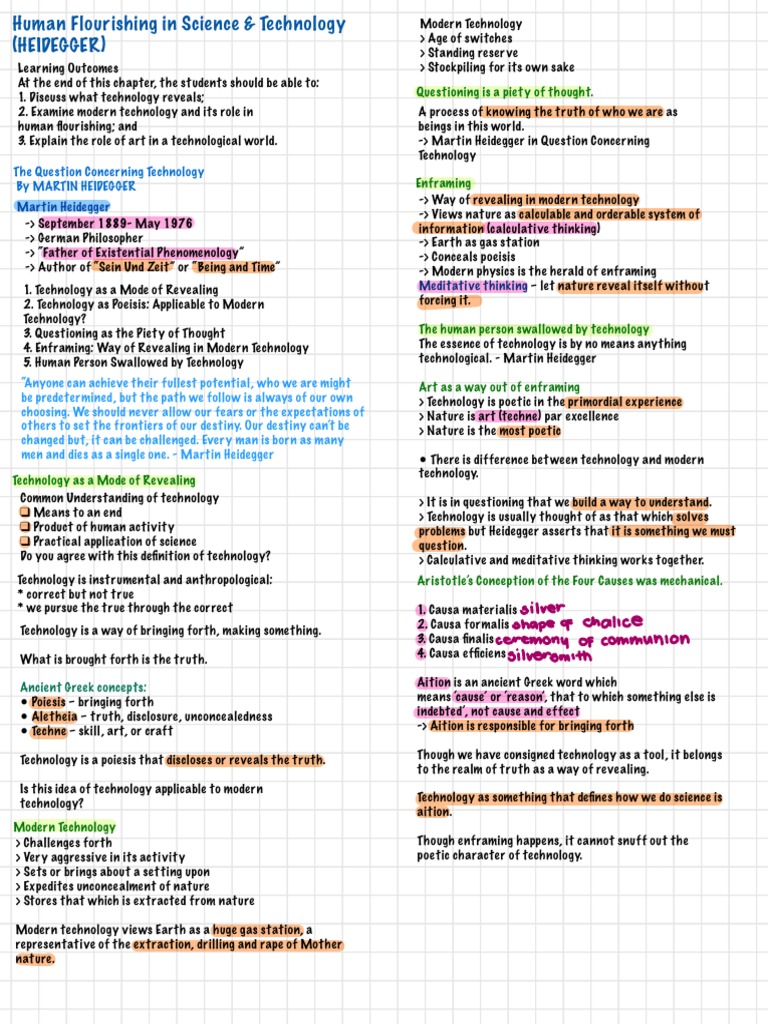 Human Flourishing in Science & Technology
(HEIDEGGER)
Learning Outcomes
At the end of this chapter, the students should be able to:
1. Discuss what technology reveals;
2. Examine modern technology and its role in
human flourishing; and
3. Explain the role of art in a technological world.
The Question Concerning Technology
By MARTIN HEIDEGGER
Martin Heidegger
-> September 1889- May 1976
-> German Philosopher
-> "Father of Existential Phenomenology"
-> Author of "Sein Und Zeit" or "Being and Time"
1. Technology as a Mode of Revealing
2. Technology as Poeisis: Applicable to Modern
Technology?
3. Questioning as the Piety of Thought
4. Enframing: Way of Revealing in Modern Technology
5. Human Person Swallowed by Technology
"Anyone can achieve their fullest potential, who we are might
be predetermined, but the path we follow is always of our own
choosing. We should never allow our fears or the expectations of
others to set the frontiers of our destiny. Our destiny can't be
changed but, it can be challenged. Every man is born as many
men and dies as a single one. - Martin Heidegger
Technology as a Mode of Revealing
Common Understanding of technology
❑ Means to an end
❑ Product of human activity
❑ Practical application of science
Do you agree with this definition of technology?
Technology is instrumental and anthropological:
* correct but not true
* we pursue the true through the correct
Technology is a way of bringing forth, making something.
What is brought forth is the truth.
Ancient Greek concepts:
• Poiesis – bringing forth
• Aletheia – truth, disclosure, unconcealedness
• Techne – skill, art, or craft
Technology is a poiesis that discloses or reveals the truth.
Is this idea of technology applicable to modern
technology?
Modern Technology
> Challenges forth
> Very aggressive in its activity
> Sets or brings about a setting upon
> Expedites unconcealment of nature
> Stores that which is extracted from nature
Modern technology views Earth as a huge gas station, a
representative of the extraction, drilling and rape of Mother
nature.
Modern Technology
> Age of switches
> Standing reserve
> Stockpiling for its own sake
Questioning is a piety of thought.
A process of knowing the truth of who we are as
beings in this world.
-> Martin Heidegger in Question Concerning
Technology
Enframing
-> Way of revealing in modern technology
-> Views nature as calculable and orderable system of
information (calculative thinking)
-> Earth as gas station
-> Conceals poeisis
-> Modern physics is the herald of enframing
Meditative thinking – let nature reveal itself without
forcing it.
The human person swallowed by technology
The essence of technology is by no means anything
technological. - Martin Heidegger
Art as a way out of enframing
> Technology is poetic in the primordial experience
> Nature is art (techne) par excellence
> Nature is the most poetic
• There is difference between technology and modern
technology.
> It is in questioning that we build a way to understand.
> Technology is usually thought of as that which solves
problems but Heidegger asserts that it is something we must
question.
> Calculative and meditative thinking works together.
Aristotle's Conception of the Four Causes was mechanical.
1. Causa materialis silver
2. Causa formalis shape of chalice
3. Causa finalis ceremony of communion
4. Causa efficiens silversmith
Aition is an ancient Greek word which
means 'cause' or 'reason', that to which something else is
indebted', not cause and effect
-> Aition is responsible for bringing forth
Though we have consigned technology as a tool, it belongs
to the realm of truth as a way of revealing.
Technology as something that defines how we do science is
aition.
Though enframing happens, it cannot snuff out the
poetic character of technology.